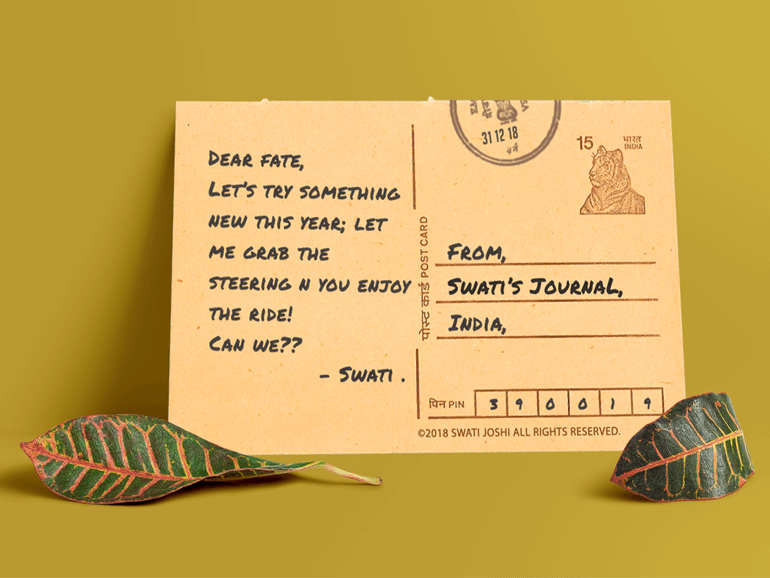 DEAR FATE,
LET'S TRY SOMETHING
NEW THIS YEAR; LET
ME GRAB THE
STEERING N YOU ENJOY
THE RIDE!
CAN WE??
- SWATI .
पोस्ट कार्ड POST CARD
31 12 18
15 भारत
INDIA
FROM,
SWATI'S JOURNAL,
INDIA,
पिन PIN 3 9 0 0 1 9
©2018 SWATI JOSHI ALL RIGHTS RESERVED.